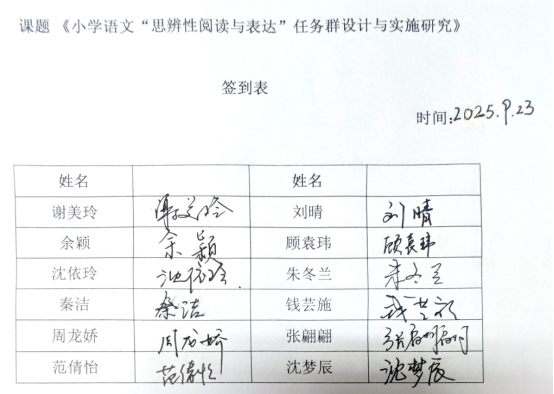 课题 《小学语文“思辨性阅读与表达”任务群设计与实施研究》
签到表
时间:2025.9.23
姓名 姓名
谢美玲 谢美玲 刘晴 刘晴
余颖 余颖 顾袁玮 顾袁玮
沈依玲 沈依玲 朱冬兰 朱冬兰
秦洁 秦洁 钱芸施 钱芸施
周龙娇 周龙娇 张翩翩 张翩翩
范倩怡 范倩怡 沈梦辰 沈梦辰